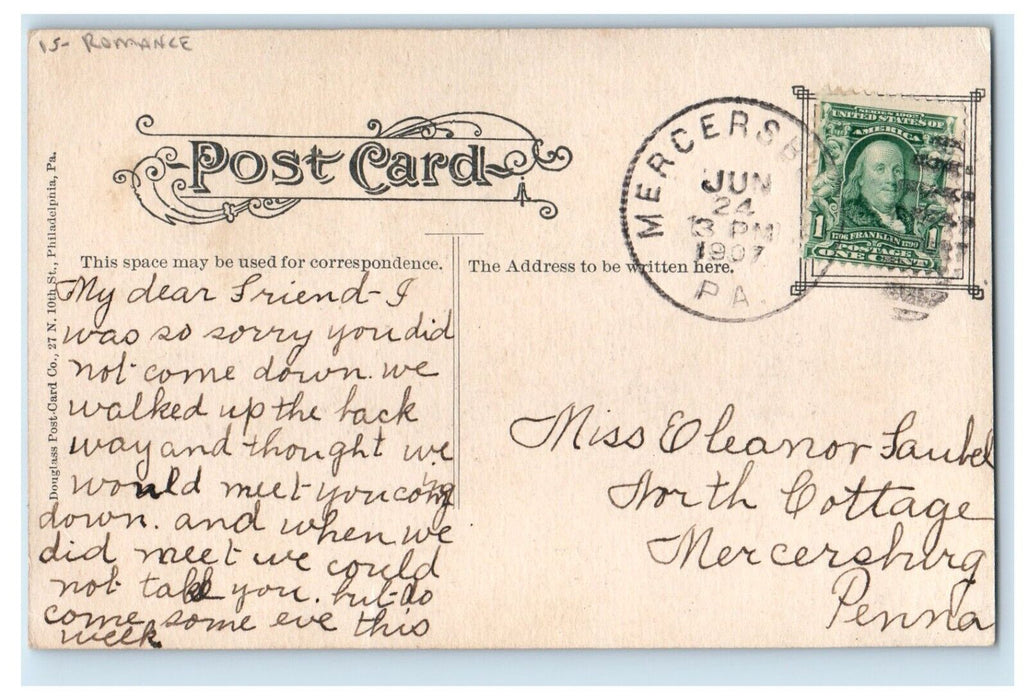 15- ROMANCE
Post Card
MERCERSBURG
JUN
24
3 PM
1907
PA.
SERIES 1902
UNITED STATES OF
AMERICA
1 1
1706 FRANKLIN 1790
POSTAGE
ONE CENT
Douglass Post-Card Co., 27 N. 10th St., Philadelphia, Pa.
This space may be used for correspondence.
The Address to be written here.
My dear Friend - I
was so sorry you did
not come down. we
walked up the back
way and thought we
would meet you comg
down. and when we
did meet we could
not take you. but do
come some eve this
week
Miss Eleanor Faubel
North Cottage
Mercersburg
Penna